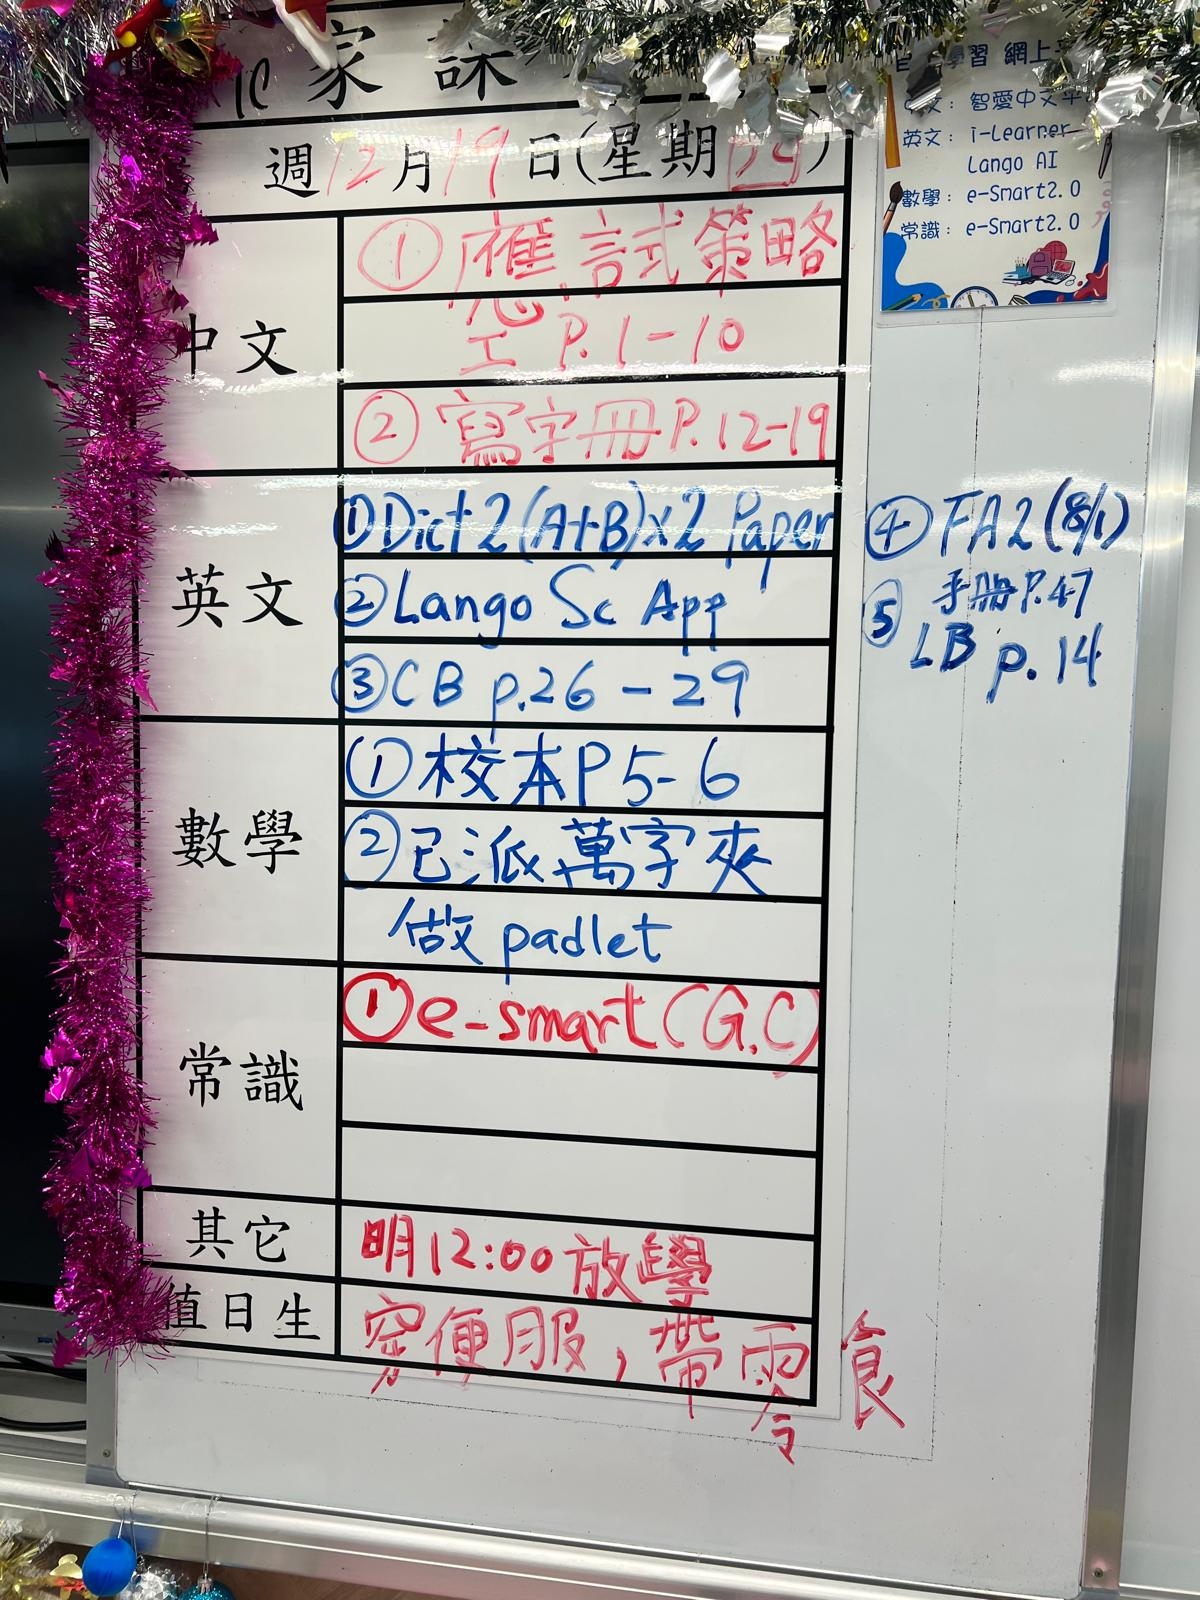 1C 家課
週12月19日(星期四)
中文
① 應試策略
工 P.1-10
② 寫字冊P.12-19
英文
①Dict 2(A+B)x2 Paper
②Lango Sc App
③CB p.26 - 29
④FA2(8/1)
手册P.47
⑤ LB p.14
數學
①校本P5-6
②已派萬字夾
做padlet
常識
①e-smart(G.C)
其它
明12:00放學
值日生
穿便服,帶零食
學習 網上
智愛中文平
英文: i-Learner
Lango AI
數學: e-Smart2.0
常識: e-Smart2.0